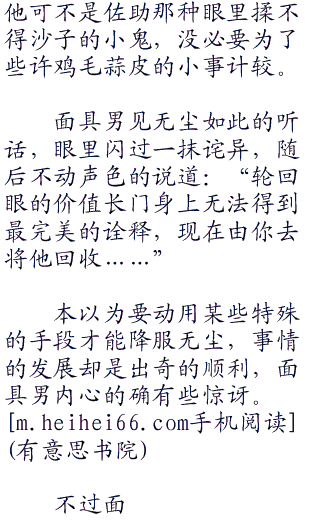 他可不是佐助那种眼里揉不
得沙子的小鬼，没必要为了
些许鸡毛蒜皮的小事计较。
面具男见无尘如此的听
话，眼里闪过一抹诧异，随
后不动声色的说道：“轮回
眼的价值长门身上无法得到
最完美的诠释，现在由你去
将他回收……”
本以为要动用某些特殊
的手段才能降服无尘，事情
的发展却是出奇的顺利，面
具男内心的确有些惊讶。
[m.heihei66.com手机阅读]
(有意思书院)
不过面